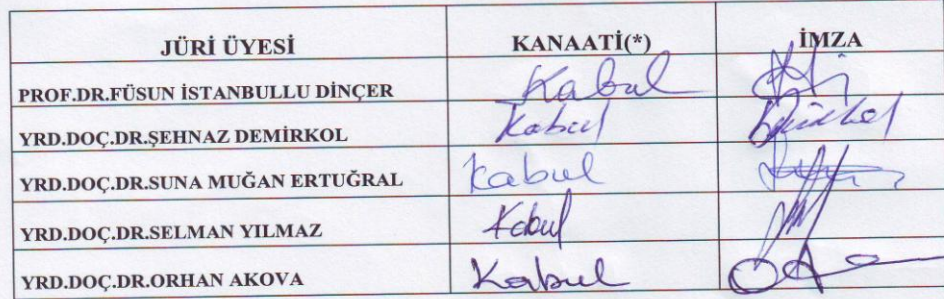 JÜRİ ÜYESİ KANAATİ(*) İMZA
PROF.DR.FÜSUN İSTANBULLU DİNÇER Kabul
YRD.DOÇ.DR.ŞEHNAZ DEMİRKOL Kabul
YRD.DOÇ.DR.SUNA MUĞAN ERTUĞRAL Kabul
YRD.DOÇ.DR.SELMAN YILMAZ Kabul
YRD.DOÇ.DR.ORHAN AKOVA Kabul